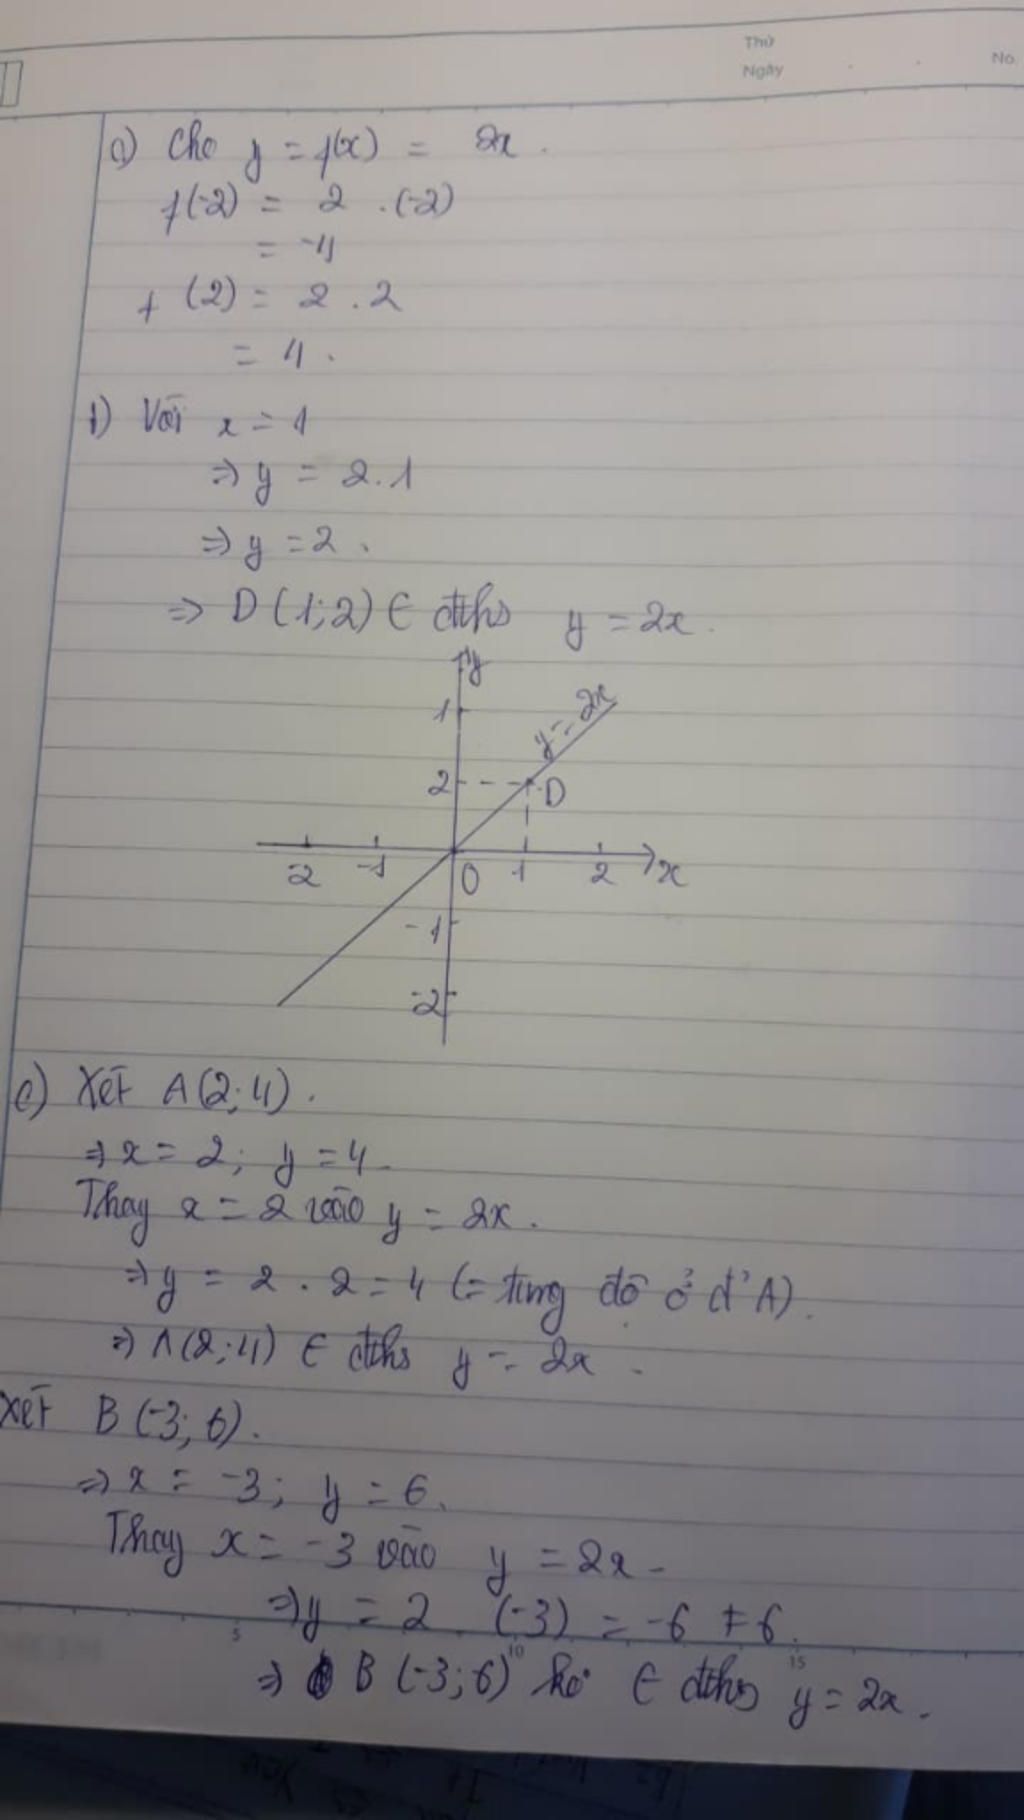 Thứ
Ngày
No.
a) Cho y = f(x) = 2x.
f(-2) = 2 . (-2)
= -4
f (2) = 2 . 2
= 4.
b) Với x = 1
⇒ y = 2.1
⇒ y = 2.
⇒ D (1;2) ∈ đths y = 2x.
y
1
y = 2x
2
D
-2 -1 0 1 2 x
-1
-2
c) Xét A(2;4).
⇒ x = 2; y = 4.
Thay x = 2 vào y = 2x.
⇒ y = 2 . 2 = 4 (= tung độ ở đ' A).
⇒ A(2;4) ∈ đths y = 2x.
Xét B (-3; 6).
⇒ x = -3; y = 6.
Thay x = -3 vào y = 2x.
⇒ y = 2 . (-3) = -6 ≠ 6.
5 10 15
⇒ B (-3;6) ko ∈ đths y = 2x.